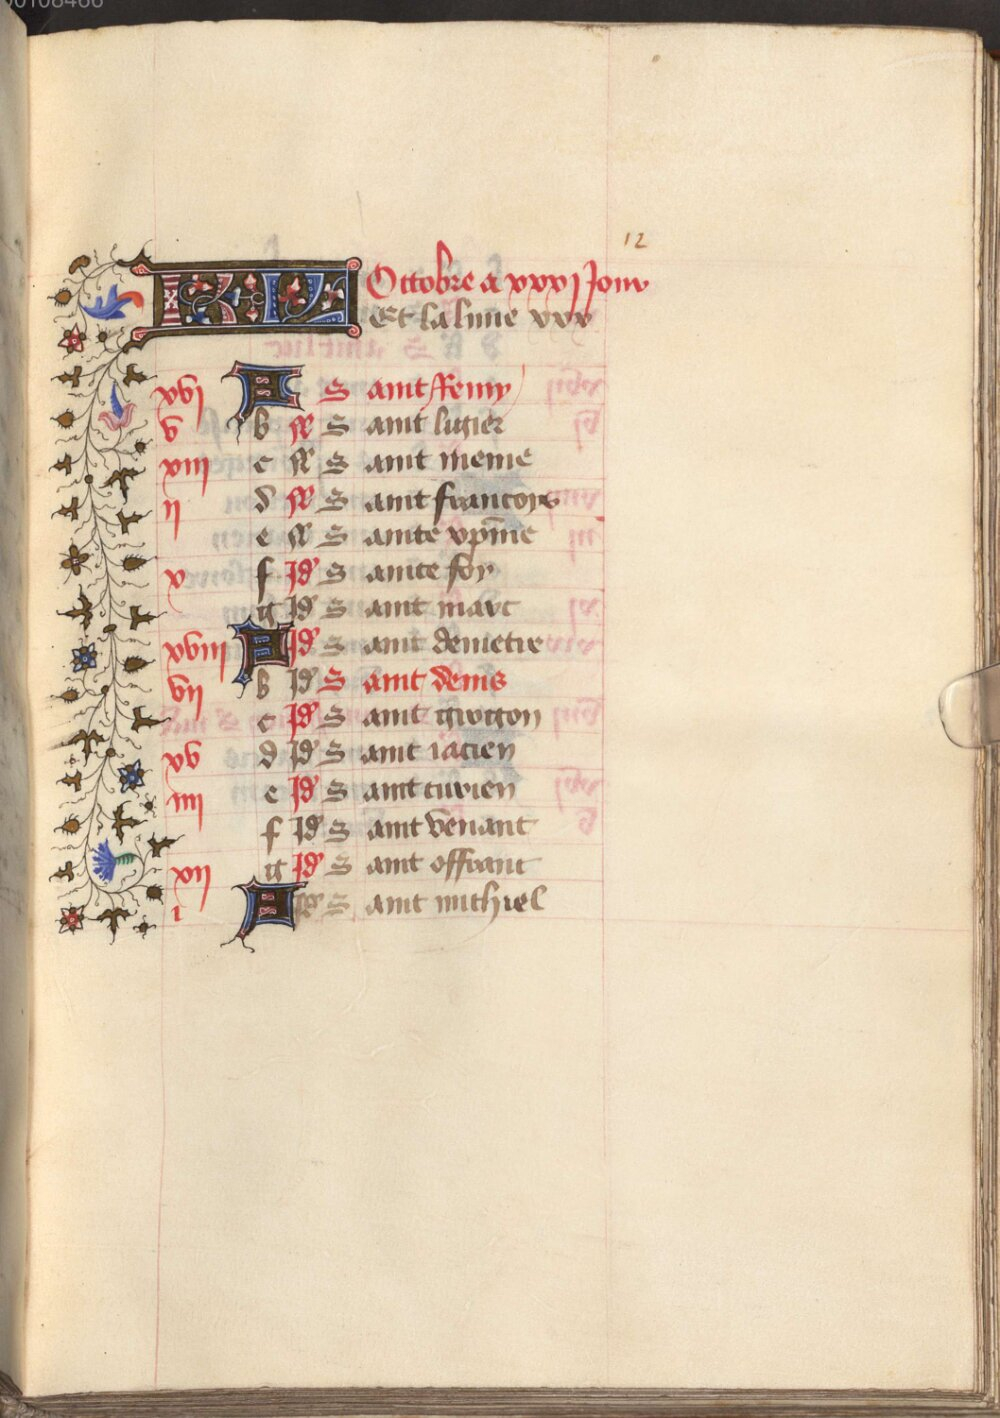 12
KL Octobre a xxxj Jour
Et la lune xxx
xvj A S aint Remy
v b N S aint ligier
xiij c N S aint meine
ij d N S aint francoys
e N S ainte xpine
x f Id' S ainte foy
g Id' S aint marc
xviij A Id' S aint demetre
vij b Id' S aint denis
c Id' S aint guogon
xv d Id' S aint iacien
iiij e Id' S aint curien
f Id' S aint venant
xij g Id' S aint offrant
i A S aint michiel